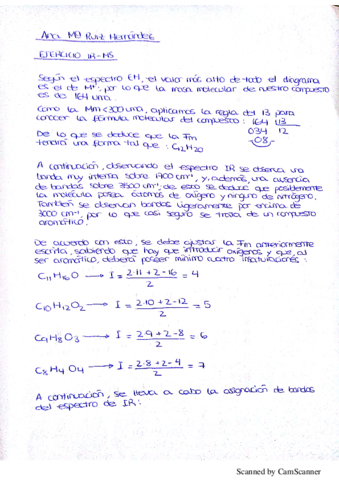 Ana Mª Ruiz Hernández
EJERCICIO IR-MS
Según el espectro EM, el valor más alto de todo el diagrama
es el de M⁺, por lo que la masa molecular de nuestro compuesto
es de 164 uma.
Como la Mm<300 uma, aplicamos la regla del 13 para
conocer la fórmula molecular del compuesto: 164 |13
034 12
De lo que se deduce que la Fm -08-
tendrá una forma tal que: C₁₂H₂₀
A continuación, observando el espectro IR se observa una
banda muy intensa sobre 1700 cm⁻¹, y, además, una ausencia
de bandas sobre 3500 cm⁻¹, de esto se deduce que posiblemente
la molécula posea átomos de oxígeno y ninguno de nitrógeno.
También se observan bandas ligeramente por encima de
3000 cm⁻¹, por lo que casi seguro se trata de un compuesto
aromático.
De acuerdo con esto, se debe ajustar la Fm anteriormente
escrita, sabiendo que hay que introducir oxígenos y que, al
ser aromático, deberá poseer mínimo cuatro insaturaciones:
C₁₁H₁₆O → I = 2·11+2-16 / 2 = 4
C₁₀H₁₂O₂ → I = 2·10+2-12 / 2 = 5
C₉H₈O₃ → I = 2·9+2-8 / 2 = 6
C₈H₄O₄ → I = 2·8+2-4 / 2 = 7
A continuación, se lleva a cabo la asignación de bandas
del espectro de IR:
Scanned by CamScanner